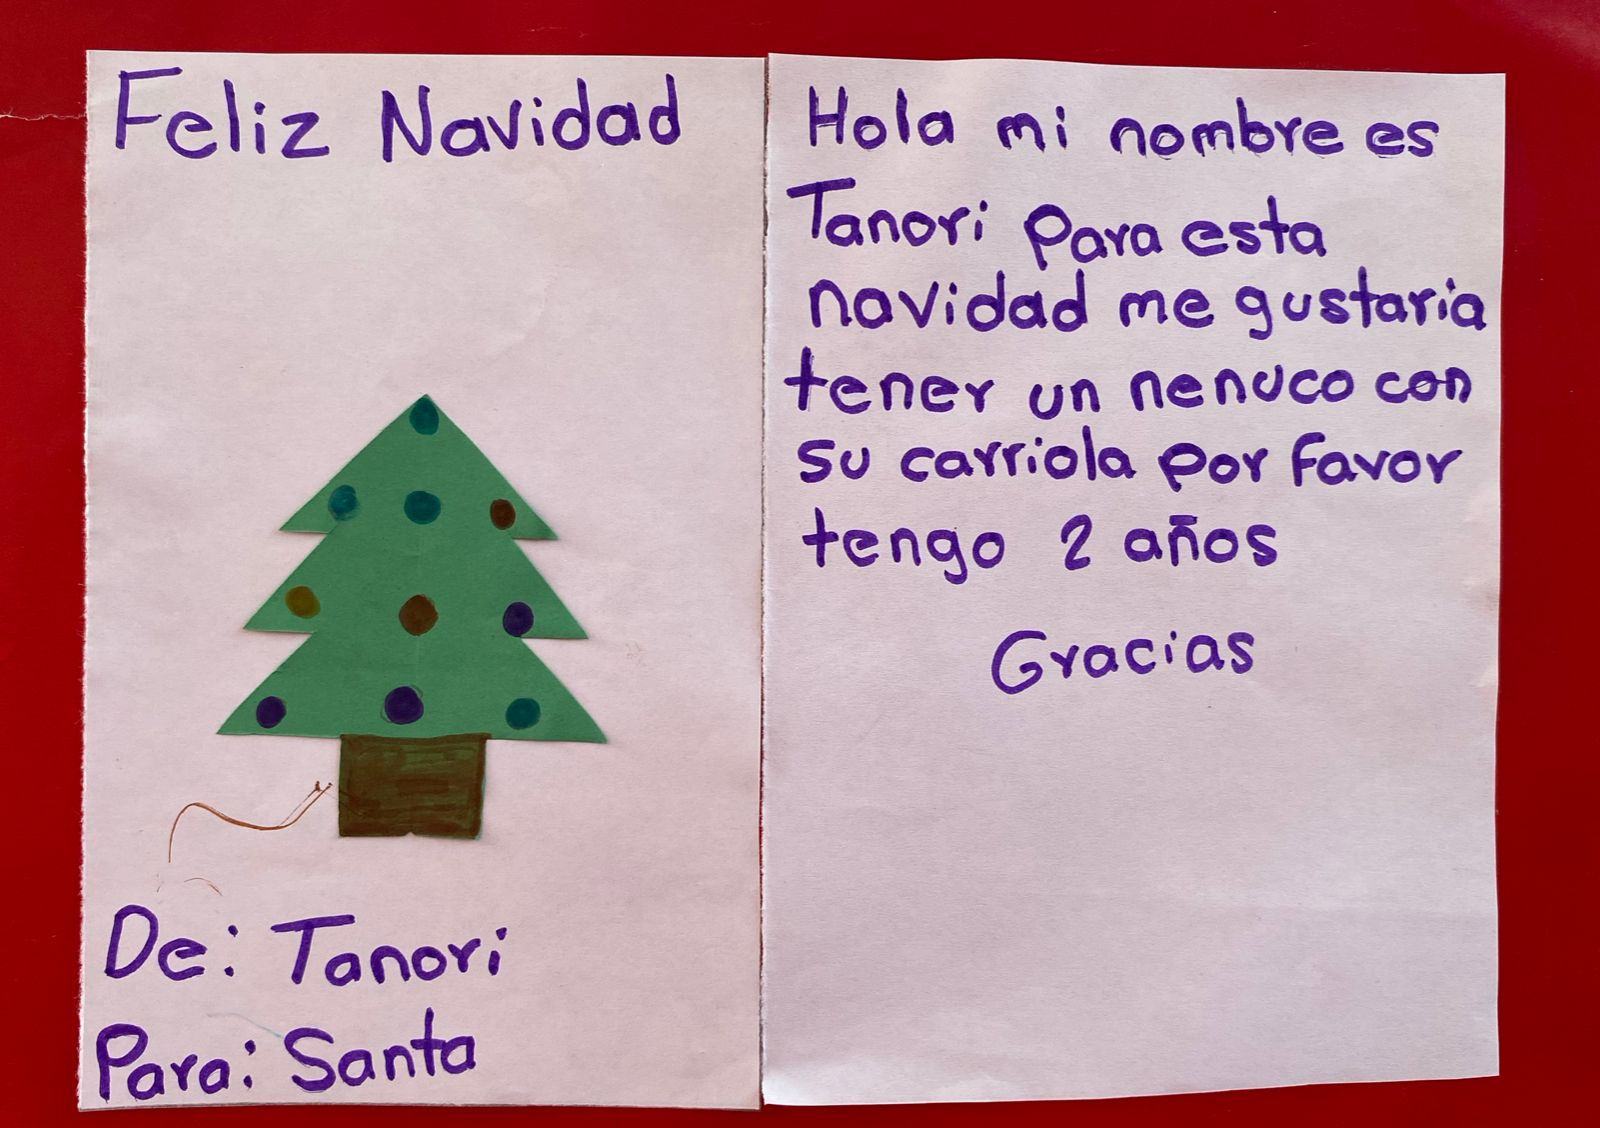 Feliz Navidad
De: Tanori
Para: Santa
Hola mi nombre es
Tanori para esta
navidad me gustaria
tener un nenuco con
su carriola por favor
tengo 2 años
Gracias